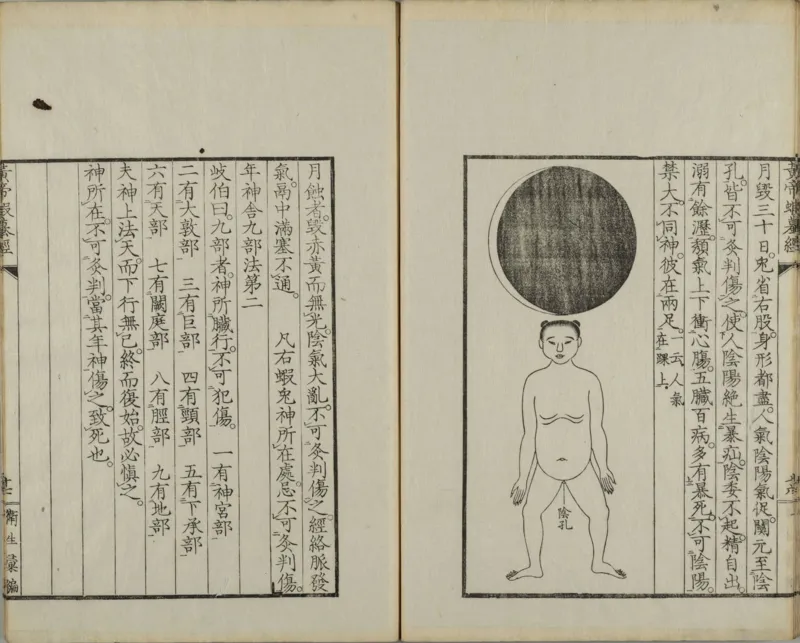 月毀三十日。兎省右股。身形都盡。人氣陰陽氣促。關元至陰
孔。皆不可灸判傷之。使人陰陽絶生暴疝。陰委不起。精自出
溺有餘瀝。頹氣上下衝心膓。五臓百病。多有暴死。不可陰陽。
禁大。不同神。彼在兩足。一云人氣
在踝上。
陰孔
月蝕者。毀赤黃而無光。陰氣大亂。不可灸判傷之。經絡脈發
氣。鬲中滿塞不通。 凡右蝦兎神所在處。忌不可灸判傷。
年神舎九部法第二
岐伯曰。九部者。神所臓行。不可犯傷。 一有神宮部
二有大敦部 三有巨部 四有頸部 五有下承部
六有天部 七有闕庭部 八有脛部 九有地部
夫神上法天。而下行無已。終而復始。故必愼之。
神所在。不可灸判。當其年神傷之。致死也。
黃帝蝦蟇經
衛生彙編